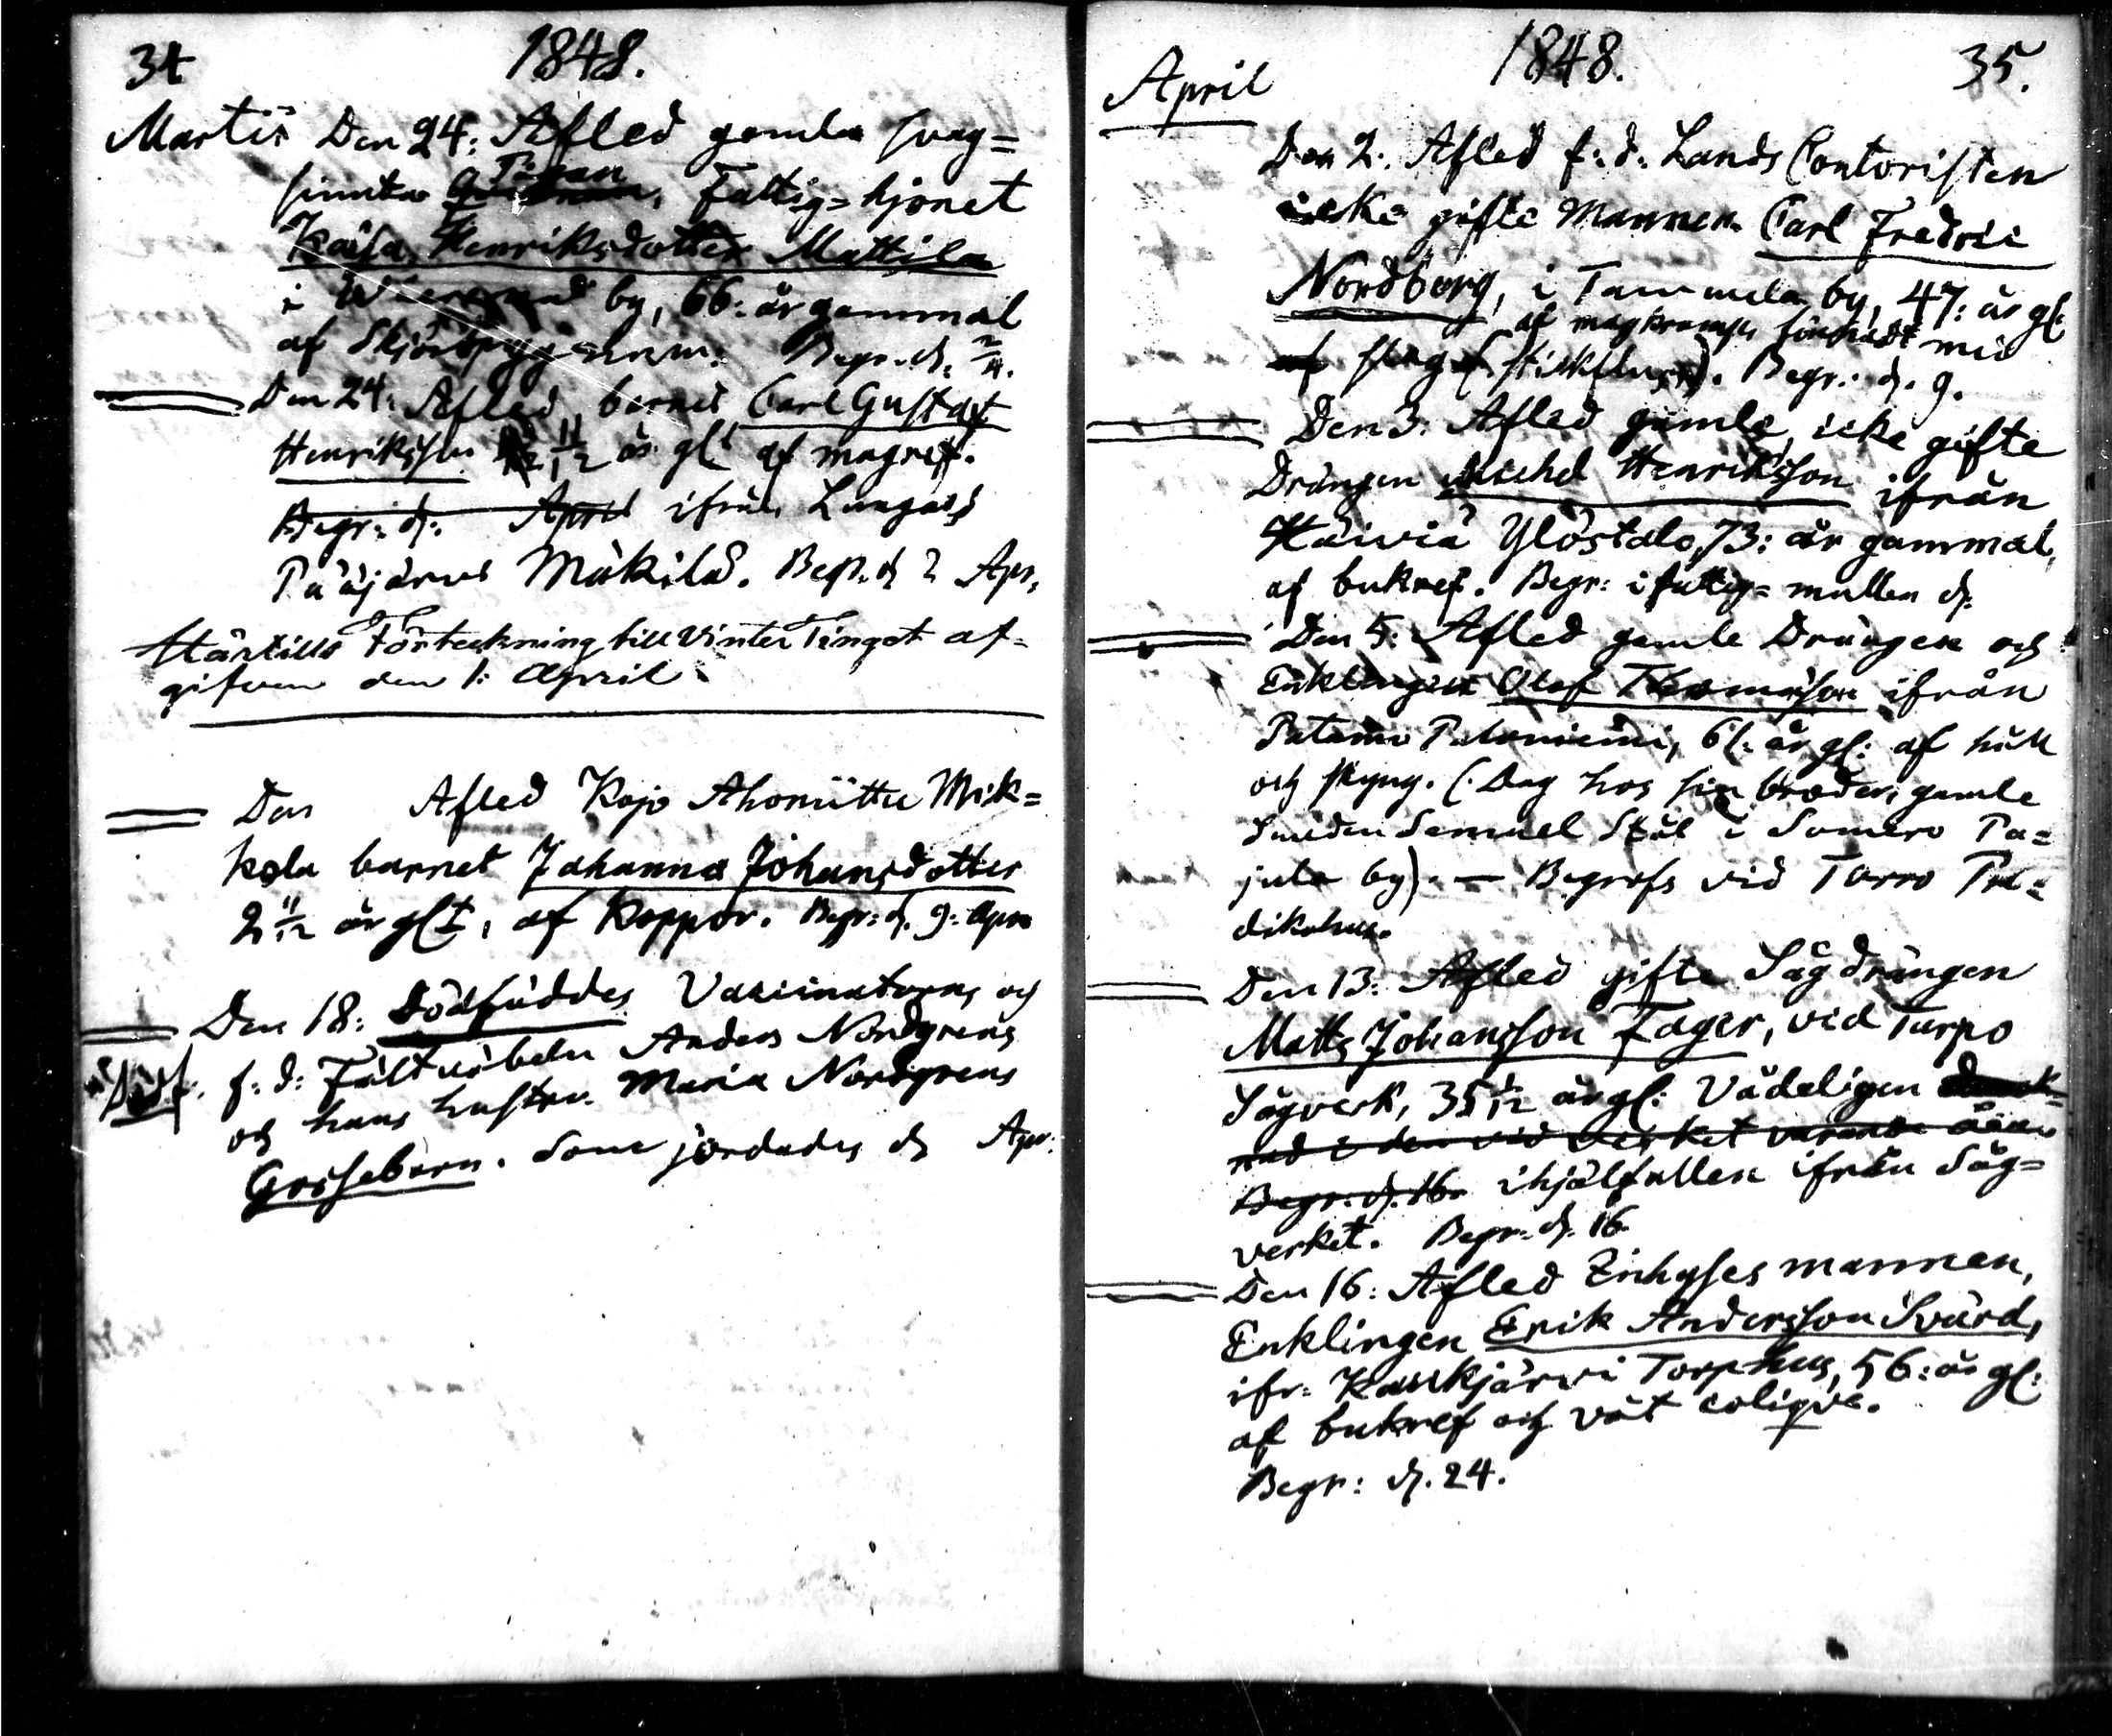 34 1848.
Martii Den 24: Afled gamla svag=
sinnta Pigan, Fattig=hjonet
Kaisa Henriksdotter Mattila
i by, 66: år gammal
af Skjörbjugg Begr. d. 2/4.
Den 24: Afled barnet Carl Gustaf
Henriksson 11/12 år glt af magref.
Begr: d. April ifrån Lungass
Pääjärvi Mäkilä. Begr. d 2 Apr.
Härtills Förteckning till Vinter Tinget af-
gifven den 1: April
Den Afled Kojo Ahomittu Mik=
kola barnet Johanna Johansdotter
2 11/12 år glt, af Koppor. Begr: d. 9: Apr
Den 18: Dödföddes Vaccinatorns och
Dödf. f: d: Fältväbeln Anders Nordgrens
och hans hustru Maria Nordgrens
Gossebarn. Som jordades d Apr:
April 1848. 35.
Den 2: Afled f: d: Lands Contoristen
icke gifte Mannen Carl Fredric
Nordberg, i Tammela by, 47: år gl:
af magkramp förenadt med
af slag (stickfluss). Begr. d. 9.
Den 3: Afled gamle, icke gifte
Drängen Michel Henriksson ifrån
Kaiviä Ylöstalo, 73: år gammal,
af bukref. Begr: i fattig=mullen d.
Den 5: Afled gamle Drängen och
Enklingen Olof Thomasson ifrån
Patamo Pataniemi, 61: år gl: af håll
och styng. (Dog hos sin broder, gamle
Smeden Samuel Stål i Somero Pa=
jula by). — Begrofs vid Torro Pre=
dikohus.
Den 13: Afled gifte Sågdrängen
Matts Johansson Fager, vid Turpo
Sågverk, 35 1/12 år gl: Vådeligen drunk=
nad i den vid verket varande åen
Begr. d. 16. ihjälfallen ifrån Såg=
verket. Begr. d. 16
Den 16: Afled Inhyses mannen,
Enklingen Erik Andersson Svärd,
ifr: Kaukjärvi Torphus, 56: år gl:
af bukref och våt colique.
Begr: d. 24.